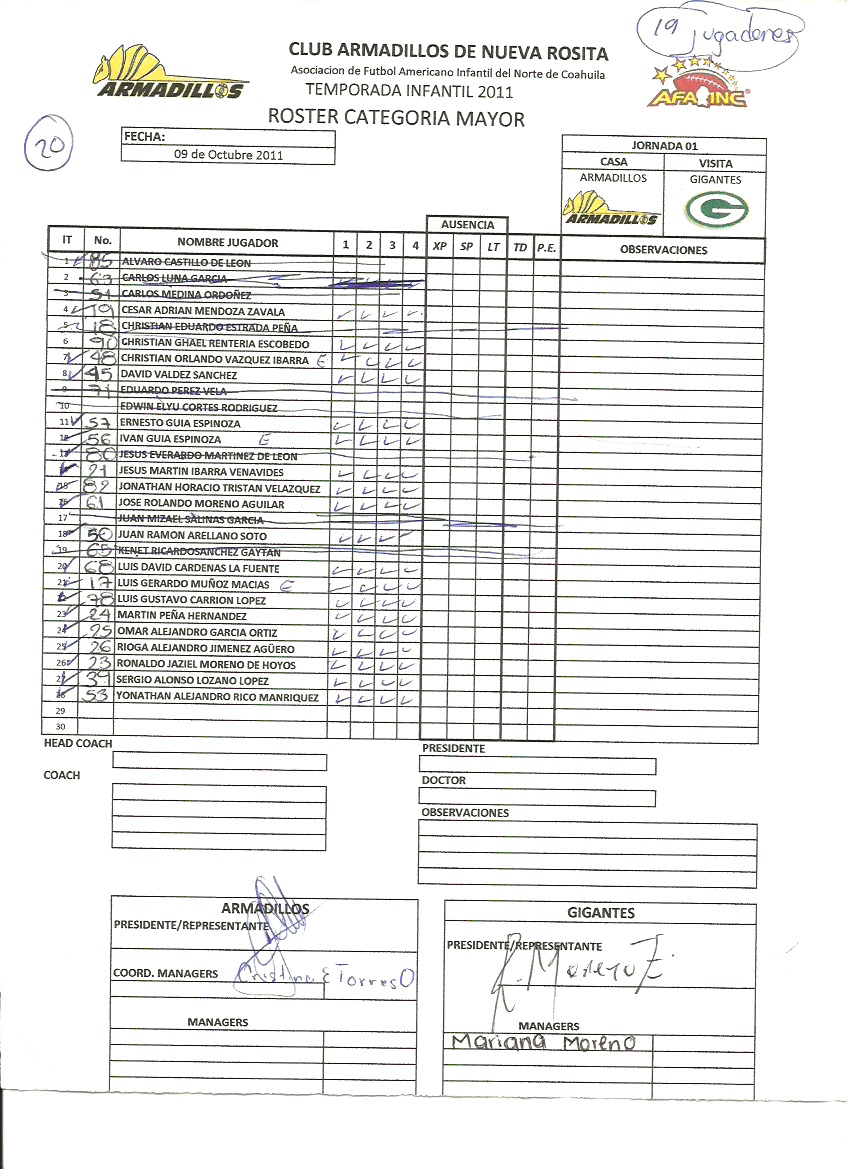 19 jugadores
CLUB ARMADILLOS DE NUEVA ROSITA
Asociacion de Futbol Americano Infantil del Norte de Coahuila
TEMPORADA INFANTIL 2011
ROSTER CATEGORIA MAYOR
ARMADILLOS
AFAINC
20
FECHA:
09 de Octubre 2011
JORNADA 01
CASA VISITA
ARMADILLOS GIGANTES
ARMADILLOS G
AUSENCIA
IT No. NOMBRE JUGADOR 1 2 3 4 XP SP LT TD P.E. OBSERVACIONES
1 85 ALVARO CASTILLO DE LEON
2 63 CARLOS LUNA GARCIA
3 51 CARLOS MEDINA ORDOÑEZ
4 19 CESAR ADRIAN MENDOZA ZAVALA
5 18 CHRISTIAN EDUARDO ESTRADA PEÑA
6 90 CHRISTIAN GHAEL RENTERIA ESCOBEDO
7 48 CHRISTIAN ORLANDO VAZQUEZ IBARRA E
8 45 DAVID VALDEZ SANCHEZ
9 71 EDUARDO PEREZ VELA
10 EDWIN ELYU CORTES RODRIGUEZ
11 57 ERNESTO GUIA ESPINOZA
12 56 IVAN GUIA ESPINOZA E
13 80 JESUS EVERARDO MARTINEZ DE LEON
21 JESUS MARTIN IBARRA VENAVIDES
15 82 JONATHAN HORACIO TRISTAN VELAZQUEZ
16 61 JOSE ROLANDO MORENO AGUILAR
17 JUAN MIZAEL SALINAS GARCIA
18 50 JUAN RAMON ARELLANO SOTO
19 65 KENET RICARDOSANCHEZ GAYTAN
20 68 LUIS DAVID CARDENAS LA FUENTE
21 17 LUIS GERARDO MUÑOZ MACIAS E
78 LUIS GUSTAVO CARRION LOPEZ
23 24 MARTIN PEÑA HERNANDEZ
24 25 OMAR ALEJANDRO GARCIA ORTIZ
25 26 RIOGA ALEJANDRO JIMENEZ AGÜERO
26 23 RONALDO JAZIEL MORENO DE HOYOS
27 39 SERGIO ALONSO LOZANO LOPEZ
28 53 YONATHAN ALEJANDRO RICO MANRIQUEZ
29
30
HEAD COACH
PRESIDENTE
COACH
DOCTOR
OBSERVACIONES
ARMADILLOS
PRESIDENTE/REPRESENTANTE
COORD. MANAGERS Cristina E Torres O
MANAGERS
GIGANTES
PRESIDENTE/REPRESENTANTE
R. Moreno Z
MANAGERS
Mariana Moreno